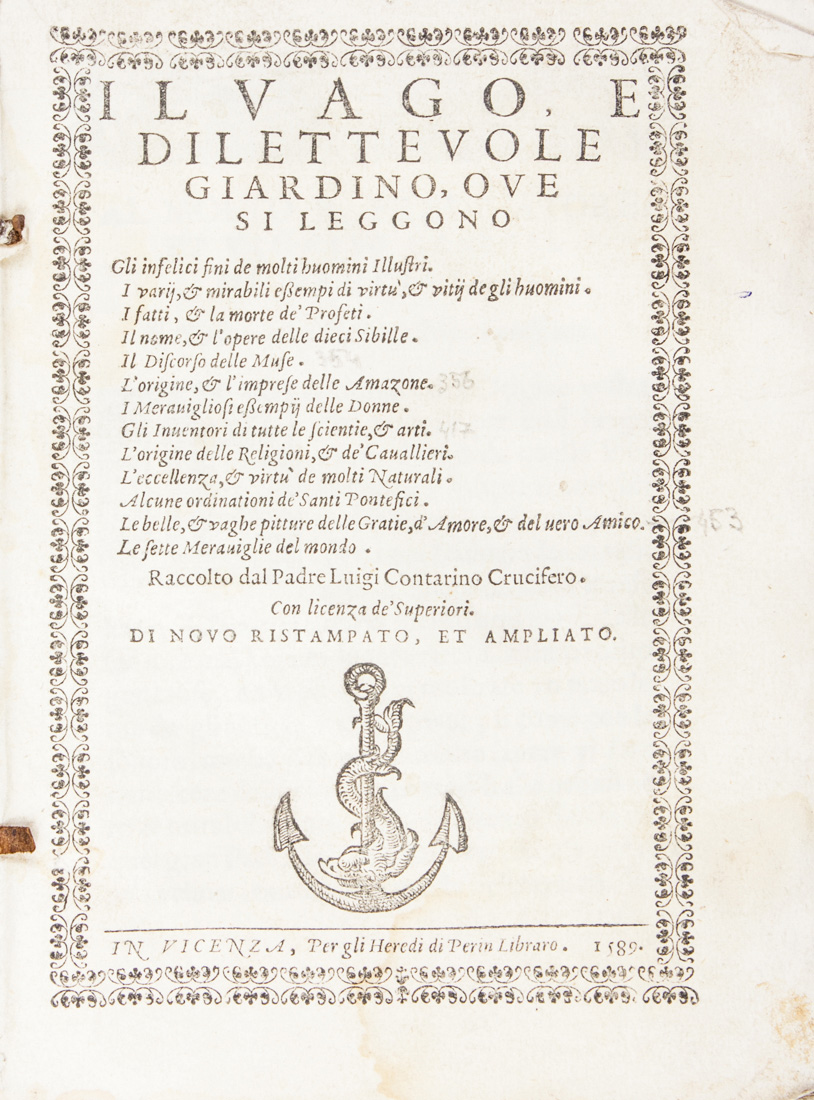 IL VAGO, E
DILETTEVOLE
GIARDINO, OVE
SI LEGGONO
Gli infelici fini de molti huomini Illuſtri.
I varij, & mirabili eßempi di virtu', & vitij de gli huomini.
I fatti, & la morte de' Profeti.
Il nome, & l'opere delle dieci Sibille.
Il Diſcorſo delle Muſe. 354
L'origine, & l'impreſe delle Amazone. 356
I Merauiglioſi eßempij delle Donne.
Gli Inuentori di tutte le ſcientie, & arti. 417
L'origine delle Religioni, & de' Cauallieri.
L'eccellenza, & virtu' de molti Naturali.
Alcune ordinationi de' Santi Pontefici.
Le belle, & vaghe pitture delle Gratie, d'Amore, & del uero Amico. 453
Le ſette Merauiglie del mondo.
Raccolto dal Padre Luigi Contarino Crucifero.
Con licenza de' Superiori.
DI NOVO RISTAMPATO, ET AMPLIATO.
IN VICENZA, Per gli Heredi di Perin Libraro. 1589.